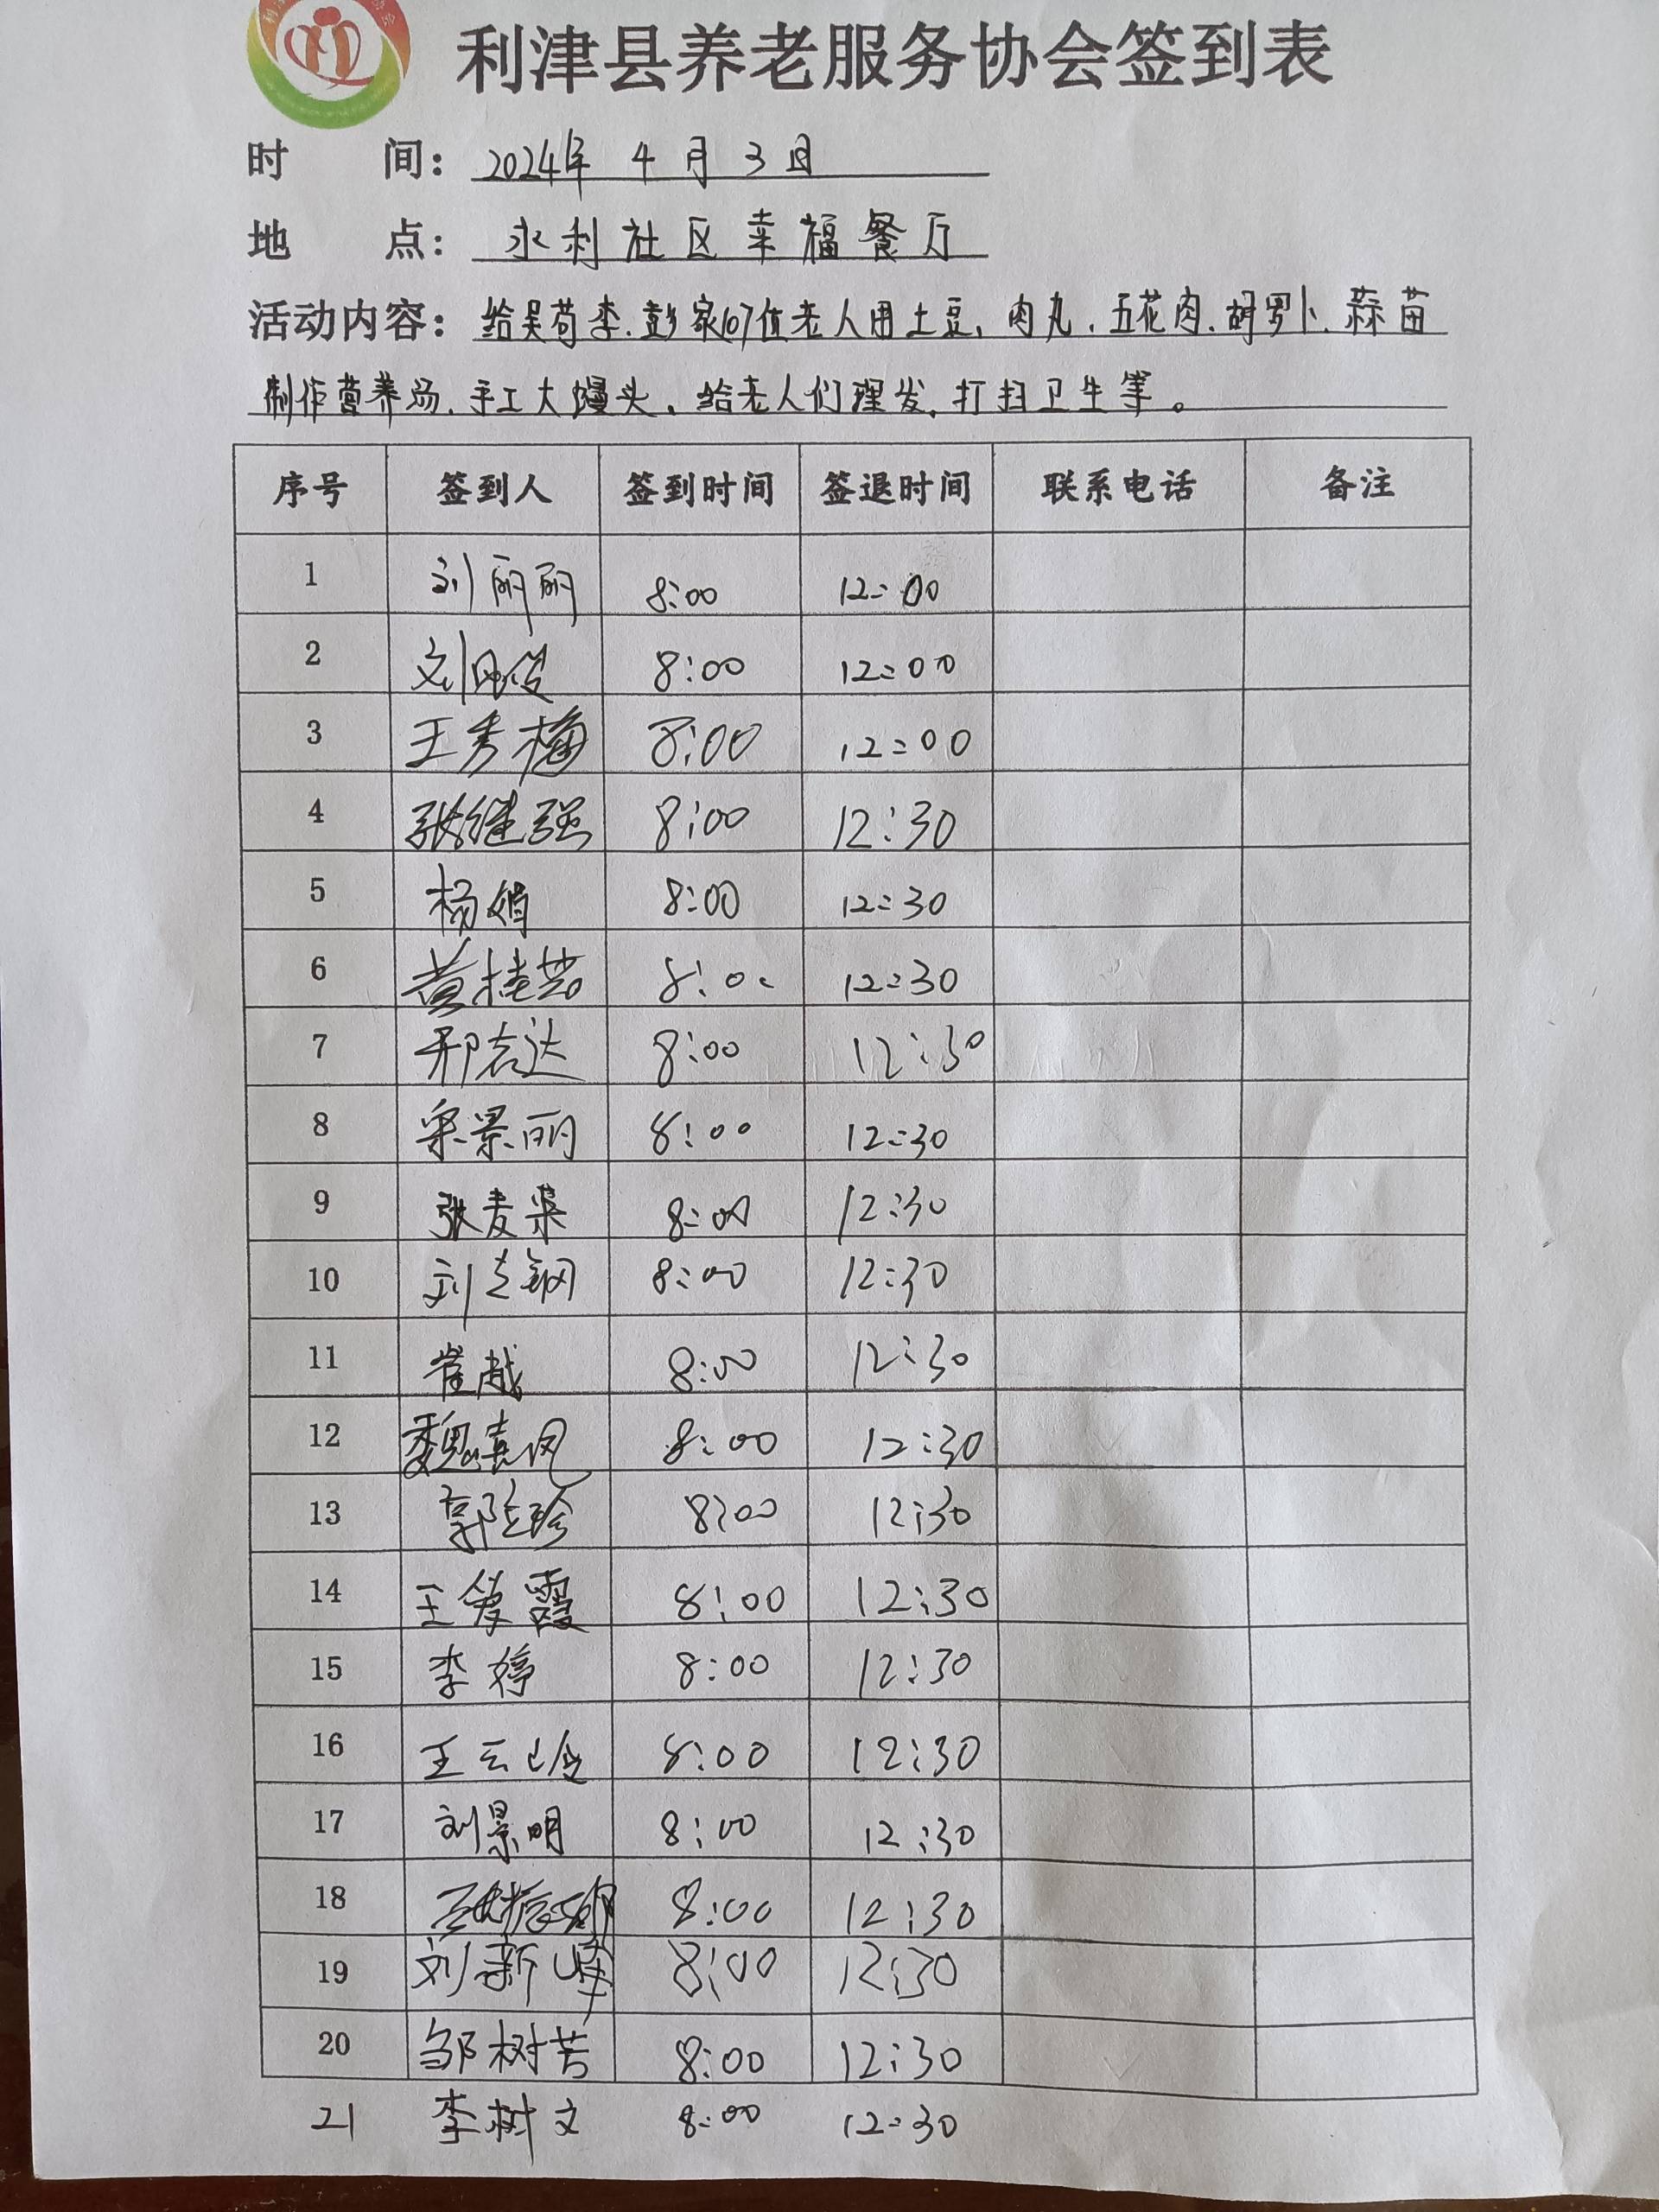 利津县养老服务协会签到表
时 间: 2024年 4 月 3 日
地 点: 永利社区幸福餐厅
活动内容: 给吴苟李、彭家107位老人用土豆、肉丸、五花肉、胡罗卜、蒜苗
制作营养汤、手工大馒头、给老人们理发、打扫卫生等。
序号 签到人 签到时间 签退时间 联系电话 备注
1 刘丽丽 8:00 12:00
2 刘 8:00 12:00
3 王秀梅 8:00 12:00
4 张继强 8:00 12:30
5 杨娟 8:00 12:30
6 黄桂芬 8:00 12:30
7 邢志达 8:00 12:30
8 宋景丽 8:00 12:30
9 张麦菜 8:00 12:30
10 刘志钢 8:00 12:30
11 崔越 8:00 12:30
12 魏喜凤 8:00 12:30
13 郭 珍 8:00 12:30
14 王爱霞 8:00 12:30
15 李婷 8:00 12:30
16 王云 8:00 12:30
17 刘景明 8:00 12:30
18 8:00 12:30
19 刘新峰 8:00 12:30
20 邹树芳 8:00 12:30
21 李树文 8:00 12:30